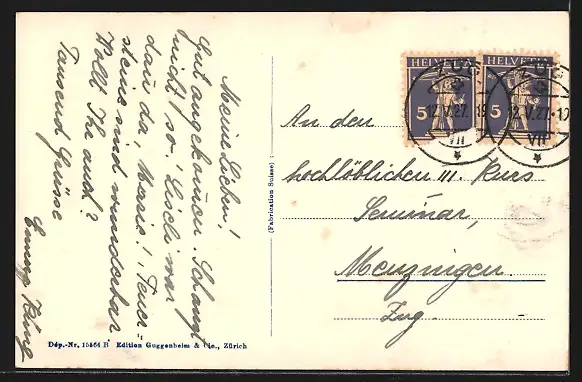 Meine Lieben!
Gut angekommen. Schampf
nicht so! Liseli war
dann da, Marie! Feuer-
steine sind wunderbar
Hollt Ihr auch?
Tausend Grüsse
Emmy
HELVETIA HELVETIA
5 5
ZUG ZUG
12.V.27. 12.V.27.
VII VII
An den
hochlöblichen III. Kurs
Seminar,
Menzingen.
Zug.
(Fabrication Suisse)
Dép.-Nr. 15464 B Edition Guggenheim & Cie., Zürich